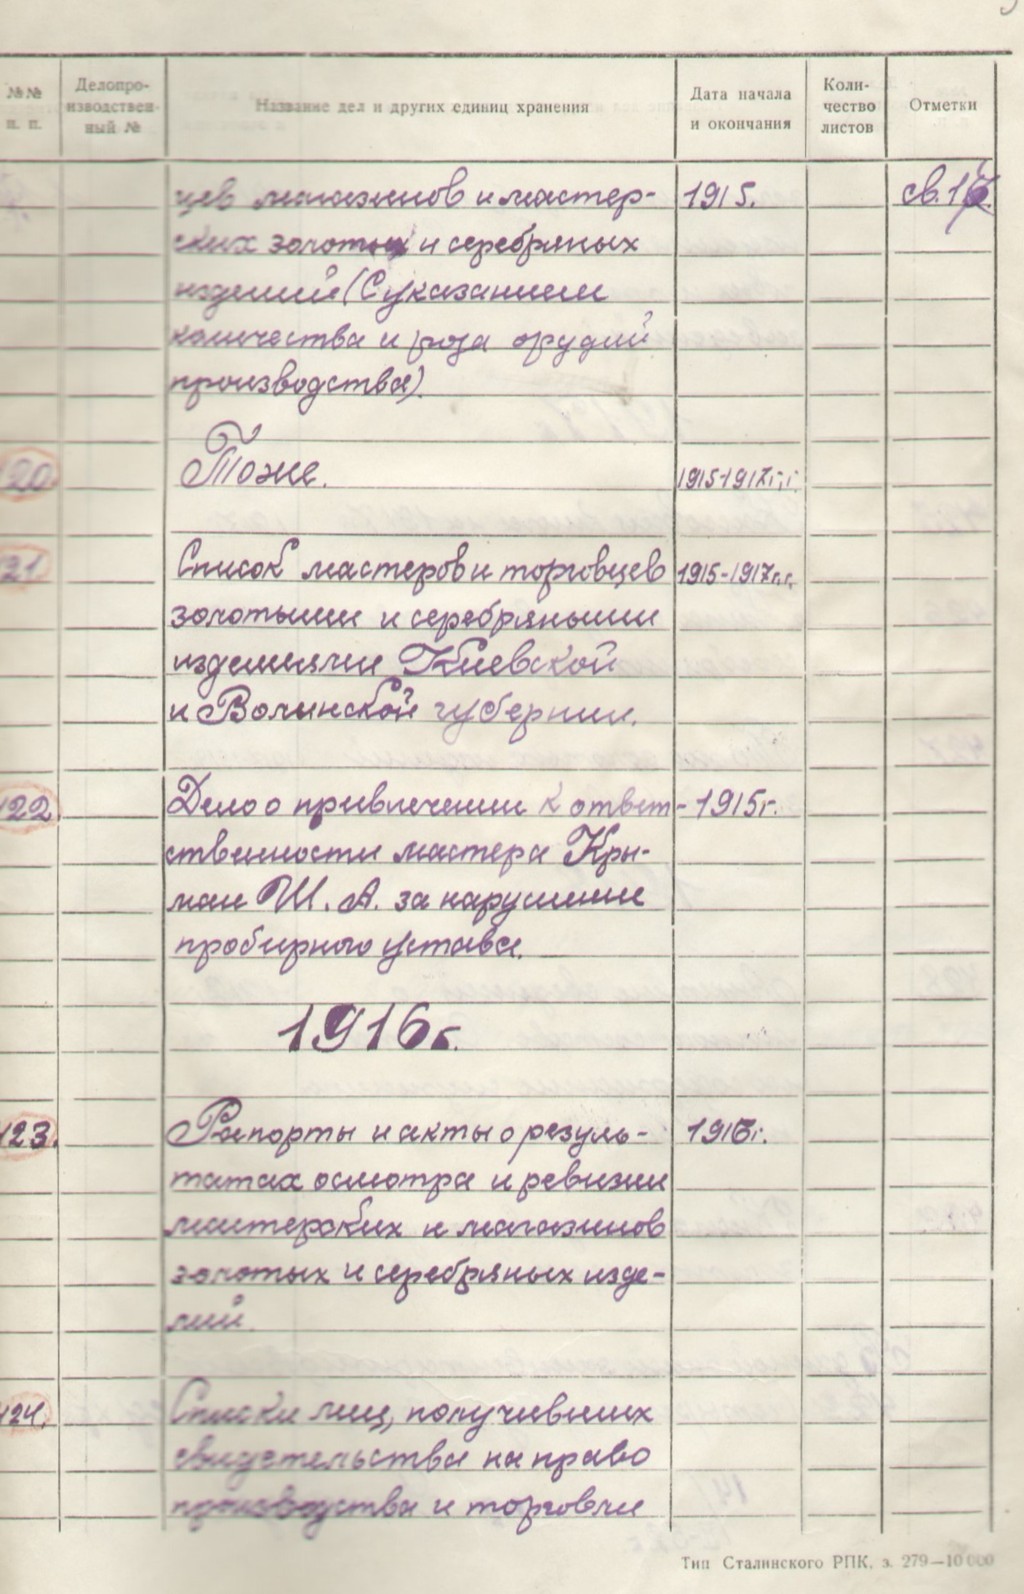 №№ п. п.
Делопро-
изводствен-
ный №
Название дел и других единиц хранения
Дата начала
и окончания
Коли-
чество
листов
Отметки
цев магазинов и мастер- 1915. св. 16.
ских золотых и серебряных
изделий (С указанием
количества и рода орудий
производства).
20. Тоже. 1915-1917г.г.
21. Список мастеров и торговцев 1915-1917г.г.
золотыми и серебряными
изделиями Киевской
и Волынской губернии.
22. Дело о привлечении к ответ- 1915г.
ственности мастера Кры-
ман Ш. А. за нарушение
пробирного устава.
1916г.
423. Рапорты и акты о резуль- 1916г.
татах осмотра и ревизии
мастерских и магазинов
золотых и серебряных изде-
лий.
424. Списки лиц, получивших
свидетельства на право
производства и торговли
Тип Сталинского РПК. з. 279—10 000